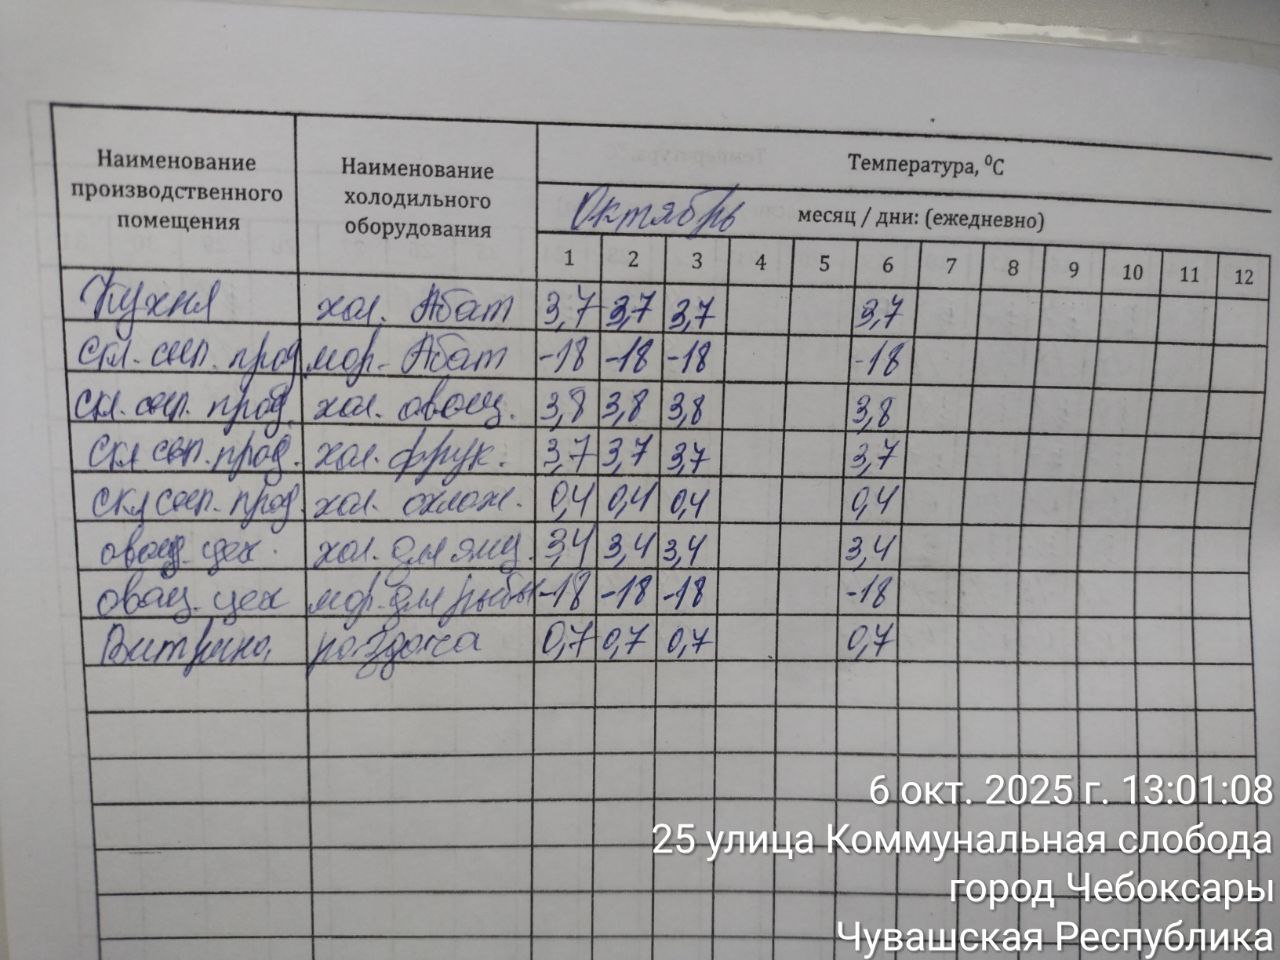 Наименование производственного помещения
Наименование холодильного оборудования
Температура, ⁰С
Октябрь месяц / дни: (ежедневно)
1 2 3 4 5 6 7 8 9 10 11 12
Кухня хол. Абат 3,7 3,7 3,7 3,7
скл. сып. прод мор. Абат -18 -18 -18 -18
скл. сып. прод. хол. овощ. 3,8 3,8 3,8 3,8
скл сып. прод. хол. фрук. 3,7 3,7 3,7 3,7
скл сып. прод. хол. охлаж. 0,4 0,4 0,4 0,4
овощ. цех. хол. для яиц. 3,4 3,4 3,4 3,4
овощ. цех мор. для рыбы -18 -18 -18 -18
Витрина раздача 0,7 0,7 0,7 0,7
6 окт. 2025 г. 13:01:08
25 улица Коммунальная слобода
город Чебоксары
Чувашская Республика